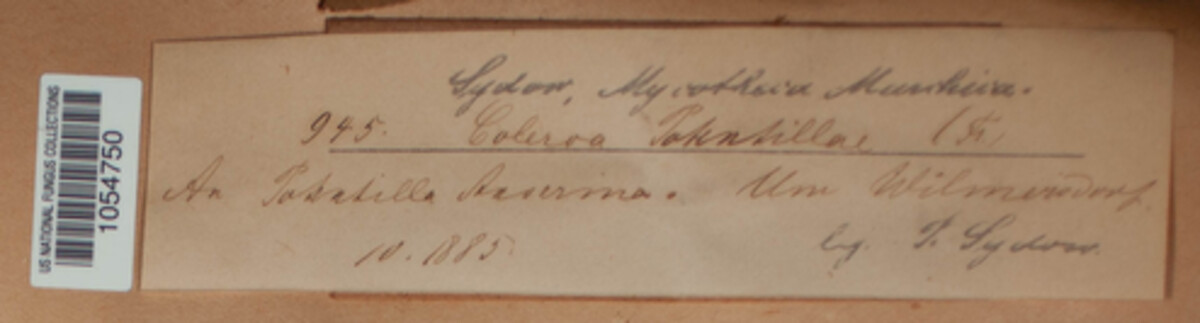 US NATIONAL FUNGUS COLLECTIONS
1054750
Sydow, Mycotheca Marchica.
945. Coleroa Potentillae (Fr)
An Potentilla Anserina. Um Wilmersdorf.
10. 1885.
leg. P. Sydow.